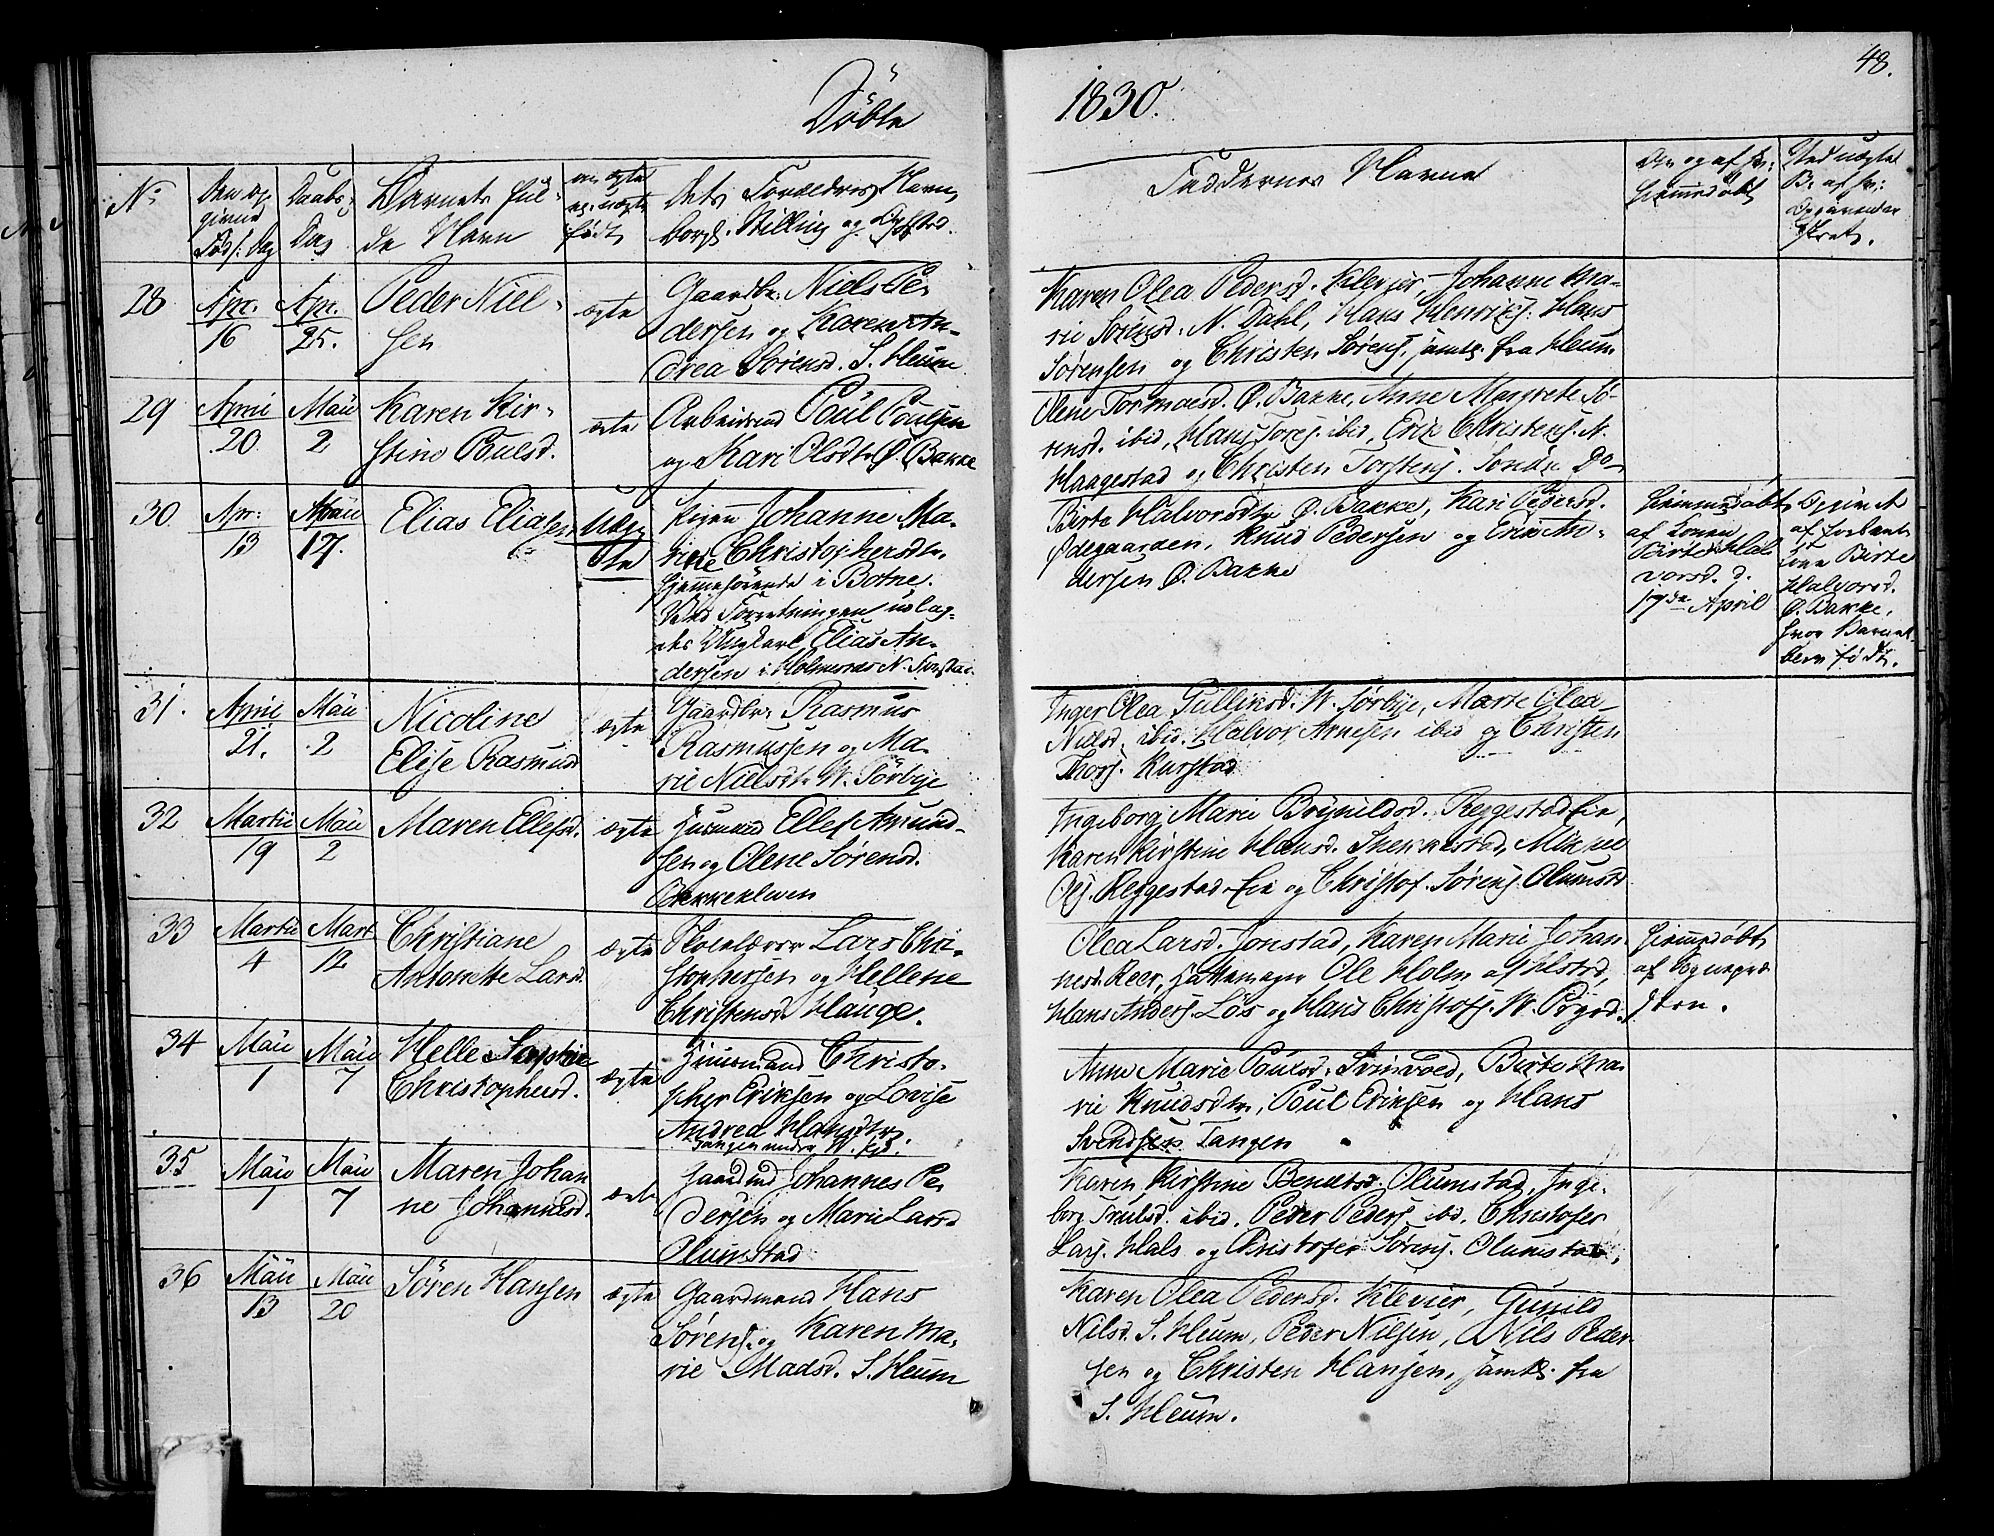 48.
Döbte
1830.
No
Den op
givne
Föds: Dag
Daabs
Dag
Barnets ful-
de Navn
om ægte
el. uægte
födt
Dets Forældres Navn,
Borgl. Stilling og Opholdssted.
Faddernes Navne
Om og af hv:
hjemmedöbt
28
Apr.
16
Apr.
25.
Peder Niel-
sen
ægte
Gaardbr. Niels Pe-
dersen og Karen An-
drea Sörensd. S. Heum
Karen Olea Pedersd. Klevjer, Johanne Ma-
rie Sörensd. N. Dahl, Hans Henriks. Hans
Sörensen og Christen Sörens. samtl. fra Heum
29
April
20
Maii
2
Karen Kir-
stine Poulsd.
ægte
Arbeidsmd Poul Poulsen
og Kari Olsdtr Ø. Bakke
Olene Tormoesd. Ø. Bakke, Anne Margrete Sö-
rensd. ibid, Hans Tores. ibid, Erik Christens. N.
Haagestad og Christen Torstens. Söndre Do-
30
Apr:
13
Maii
17.
Elias Eliassen
Uæg
te
Pigen Johanne Ma-
rie Christophersdtr.
hjemmehörende i Botne.
Ved Forretningen udlag-
des Ungkarl Elias An-
dersen i Holmenæs N.
Birte Halvorsdtr Ø. Bakke, Kari Pedersd.
Ødegaarden, Knud Pedersen og Erik An-
dersen Ø. Bakke
Hjemmedöbt
af Konen
Birte Hal
vorsd. d.
17de April
af
Kone Birte
Halvorsd.
Ø. Bakke,
hvor Barnet
blev födt.
31.
April
21.
Maii
2
Nicoline
Elise Rasmusd
ægte
Gaardbr. Rasmus
Rasmussen og Ma-
rie Nielsdt. W. Sörbye
Inger Olea Gulliksd. W. Sörbye, Marie Olea
Nielsd. ibid. Halvor Arnesen ibid og Christen
Thors. Kurstad
32
Martii
19
Maii
2
Maren Ellefsd.
ægte
Huusmand Ellef Amund-
sen og Olene Sörensd.
Bakkehaven
Ingeborg Marie Brynildsd. Reggestad Eie,
Karen Kirstine Hansd. Skekkestad, Mikkel
Ols. Reggestad-Eie og Christof. Sörens. Olumstad
33
Martii
4
Mart
12
Christiane
Antonette Larsd.
ægte
Skolelærer Lars Chri-
stophersen og Hellene
Christensd. Hauge.
Olea Larsd. Jonstad, Karen Marie Johan-
nesd. Reer, Hattemager Ole Holm af Ulstad,
Hans Anders. Lös og Hans Christofs. W. Bryed.
Hjemmedöbt
af Sognepræ
sten.
34
Maii
1
Maii
7
Helle Sophie
Christophersd.
ægte
Huusmand Christo-
pher Eriksen og Lovise
Andrea Hansdtr.
Tangen under W.
Anne Marie Poulsd. Svinvoed, Birte Ma-
rie Knudsdtr, Poul Eriksen og Hans
Svendsen Tangen
35
Maii
1
Maii
7
Maren Johan
ne Johannesd.
ægte
Gaardmd Johannes Pe
dersen og Marie Larsd
Olumstad
Karen Kirstine Bendtsd. Olumstad, Inge-
borg Trulsd. ibid. Peder Peders ibid. Christofer
Lars. Hals og Christofer Sörens. Olumstad,
36
Maii
13
Maii
20
Sören Hansen
ægte
Gaardmand Hans
Sörens. og Karen Ma-
rie Madsd. S. Heum
Karen Olea Pedersd. Klevier, Gunild
Nilsd. S. Heum, Peder Nilsen, Nils Peder
sen og Christen Hansen, samtl. fra
S. Heum.